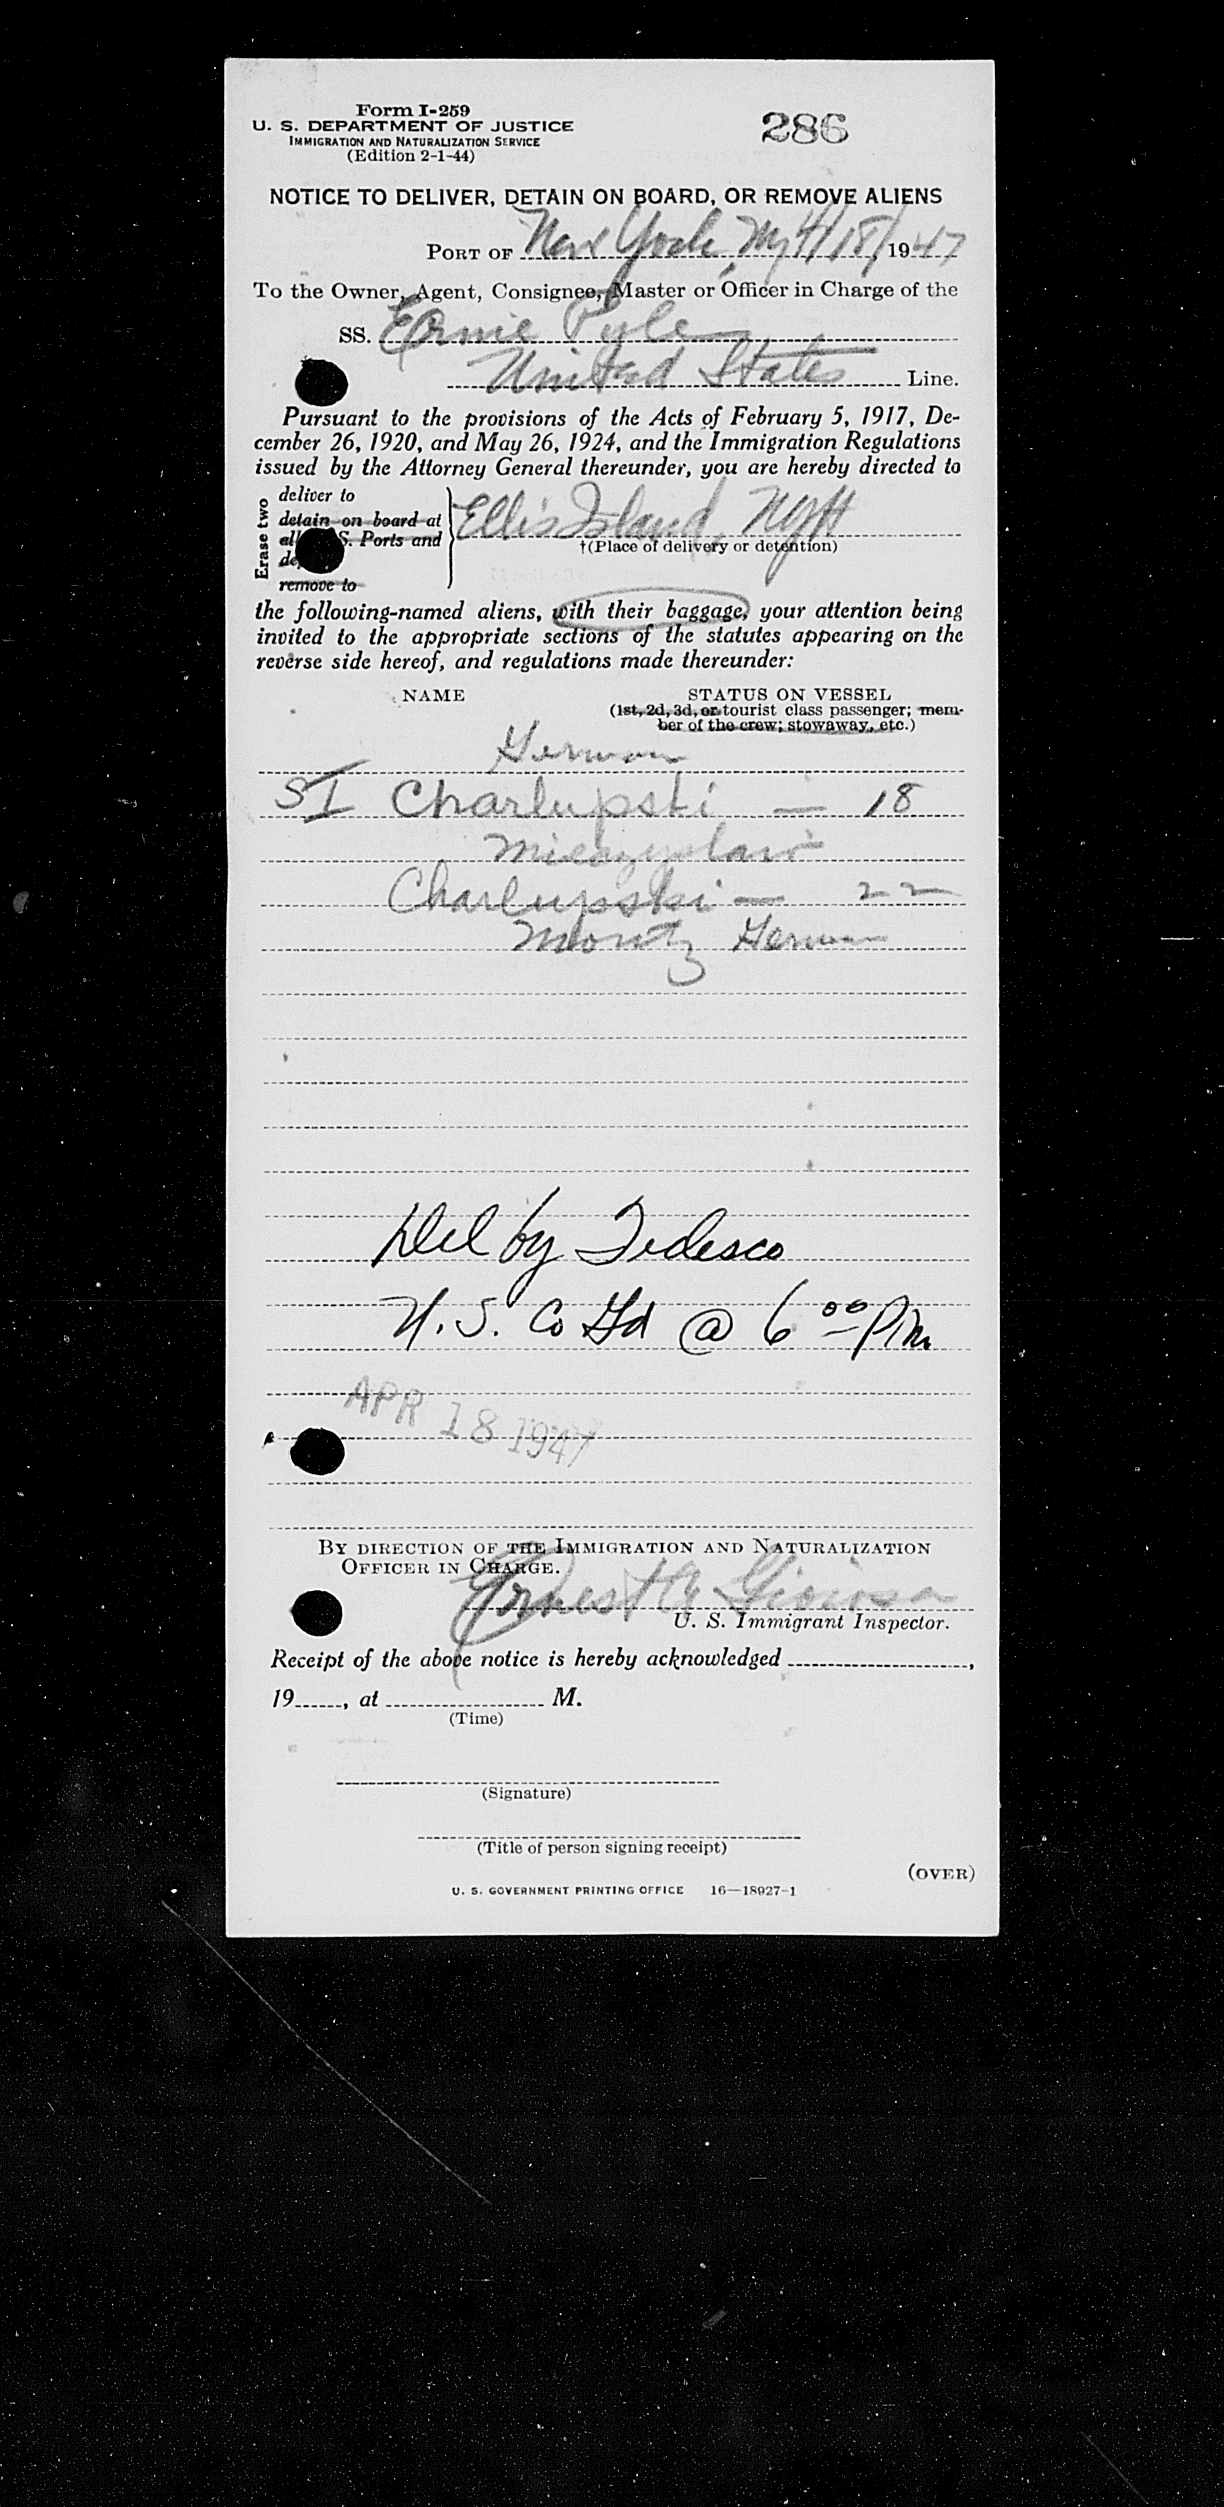 Form I-259
U. S. DEPARTMENT OF JUSTICE
IMMIGRATION AND NATURALIZATION SERVICE
(Edition 2-1-44)
286
NOTICE TO DELIVER, DETAIN ON BOARD, OR REMOVE ALIENS
PORT OF New York, NY 4/18/, 1947
To the Owner, Agent, Consignee, Master or Officer in Charge of the
SS. Ernie Pyle
United States Line.
Pursuant to the provisions of the Acts of February 5, 1917, De-
cember 26, 1920, and May 26, 1924, and the Immigration Regulations
issued by the Attorney General thereunder, you are hereby directed to
Erase two
deliver to
detain on board at
all S. Ports and
remove to
Ellis Island, NYH
†(Place of delivery or detention)
the following-named aliens, with their baggage, your attention being
invited to the appropriate sections of the statutes appearing on the
reverse side hereof, and regulations made thereunder:
NAME STATUS ON VESSEL
(1st, 2d, 3d, or tourist class passenger; mem-
ber of the crew; stowaway, etc.)
Herman
SI Charlupski — 18
Mieczyslaw
Charlupski — 22
Moritz Herman
Del by Tedesco
U. S. Co Gd @ 6 00 P.M.
APR 18 1947
BY DIRECTION OF THE IMMIGRATION AND NATURALIZATION
OFFICER IN CHARGE.
Ernest A
U. S. Immigrant Inspector.
Receipt of the above notice is hereby acknowledged ,
19 , at M.
(Time)
(Signature)
(Title of person signing receipt)
(OVER)
U. S. GOVERNMENT PRINTING OFFICE 16—18927-1